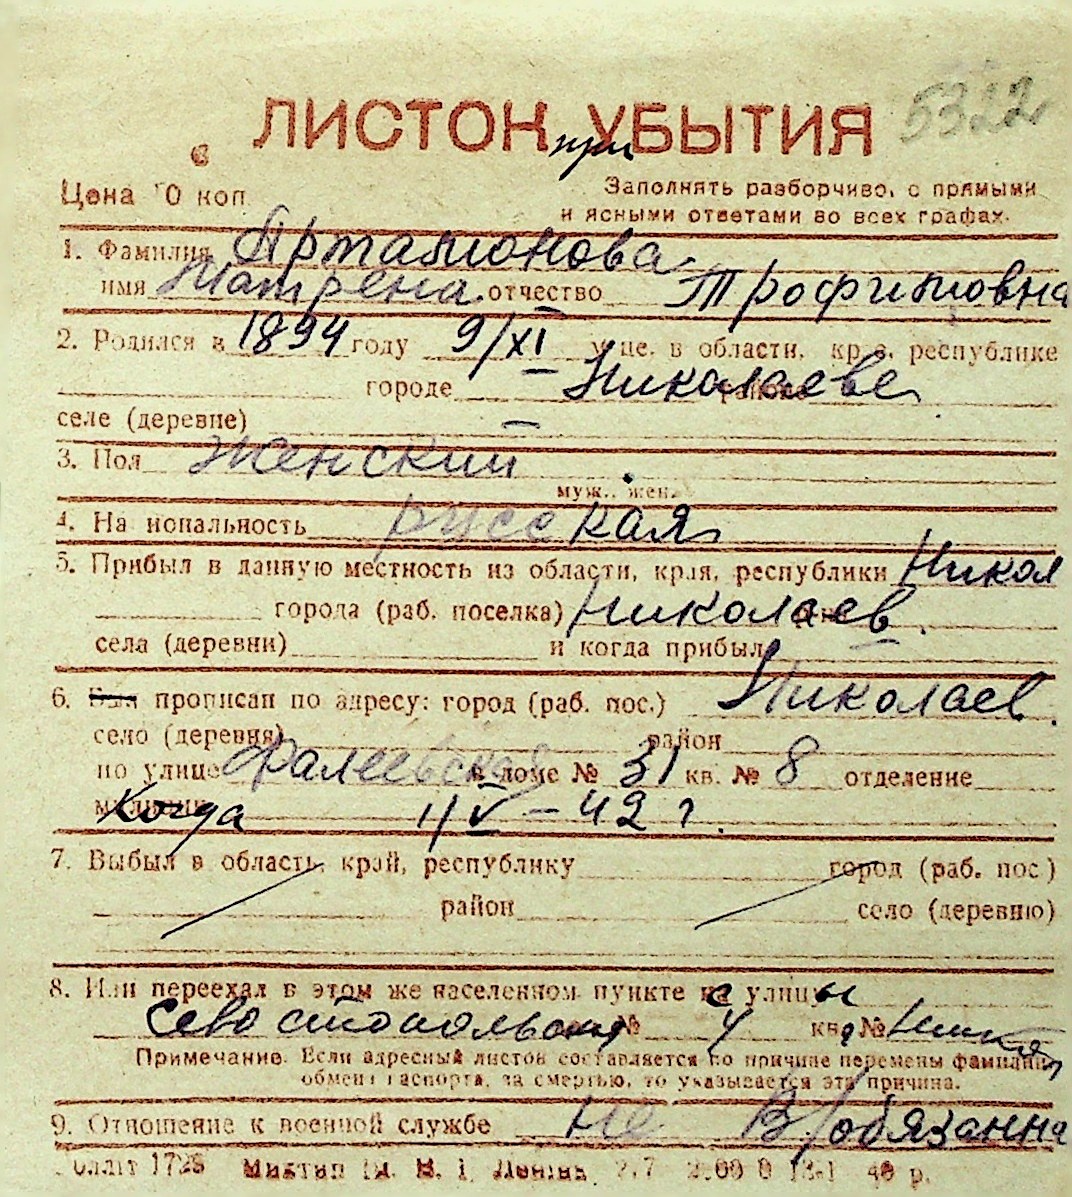 5322
ЛИСТОК УБЫТИЯ
при
Цена 0 коп
Заполнять разборчиво, с прямыми
и ясными ответами во всех графах.
1. Фамилия Артамонова
имя Матрена отчество Трофимовна
2. Родился в 1894 году 9/XI м-це, в области, кр е, республике
городе Николаеве
селе (деревне) —
3. Пол женский
муж., жен.
4. На иональность русская
5. Прибыл в данную местность из области, края, республики Никол
города (раб. поселка) Николаев.
села (деревни) и когда прибыл
6. Был прописан по адресу: город (раб. пос.) Николаев.
село (деревня) район
по улице Фалеевская в доме № 31 кв. № 8 отделение
милиции Когда 1/V – 42 г.
7. Выбыл в область, край, республику город (раб. пос)
район село (деревню)
8. Или переехал в этом же населенном пункте с улицы
Севостопольская № 4 кв. №
Примечание. Если адресный листок составляется по причине перемены фамилии,
обмена паспорта, за смертью, то указывается эта причина.
9. Отношение к военной службе не в/обязанна
1728